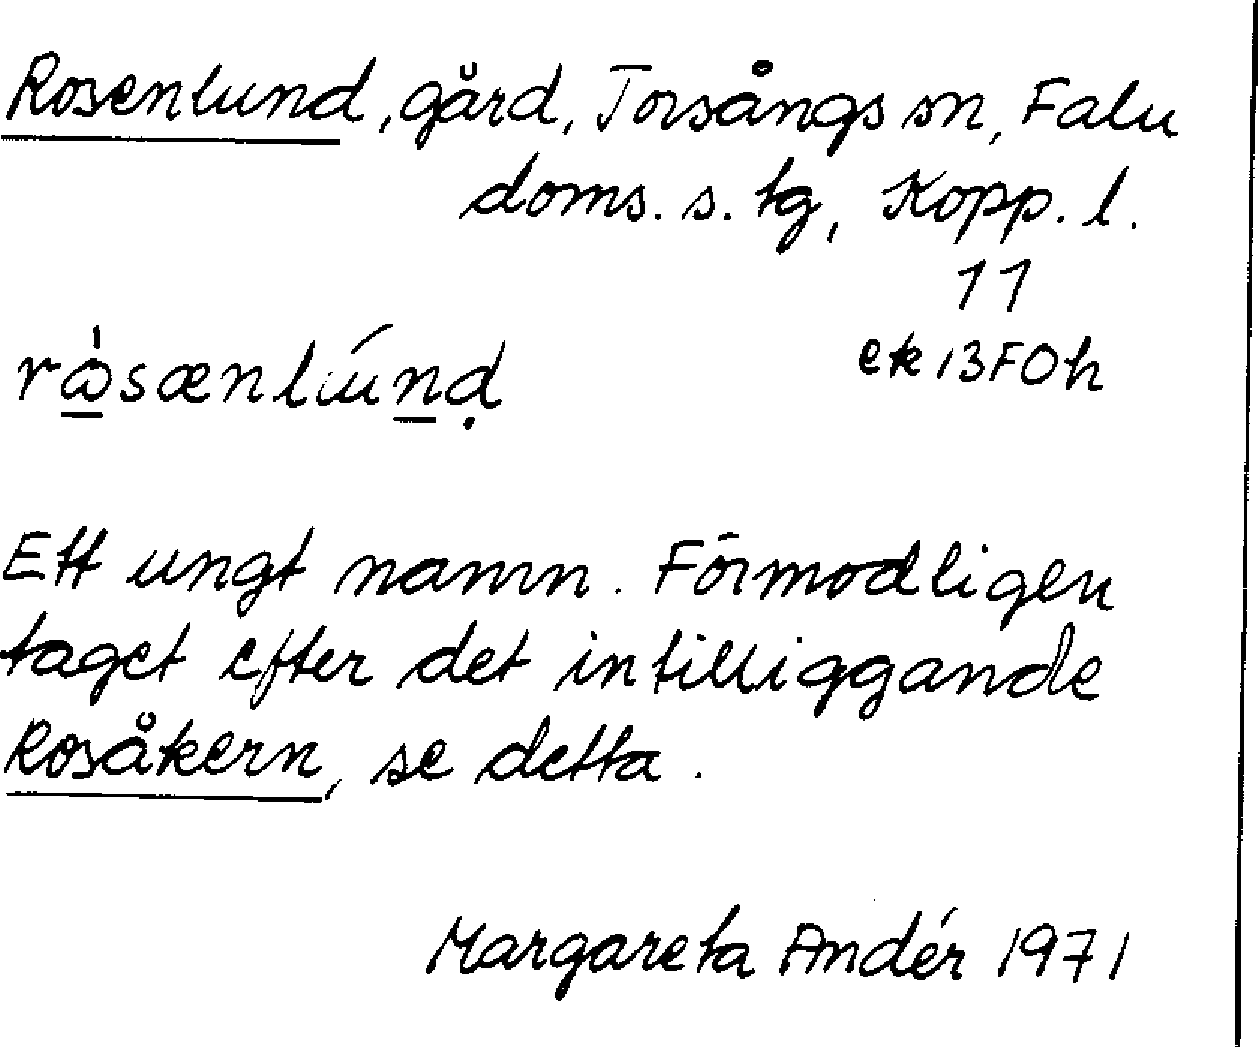 Rosenlund, gård, Torsångs sn, Falu
doms. s. tg, Kopp. l.
11
ek 13F0h
Ett ungt namn. Förmodligen
taget efter det intilliggande
Rosåkern, se detta.
Margareta Andér 1971